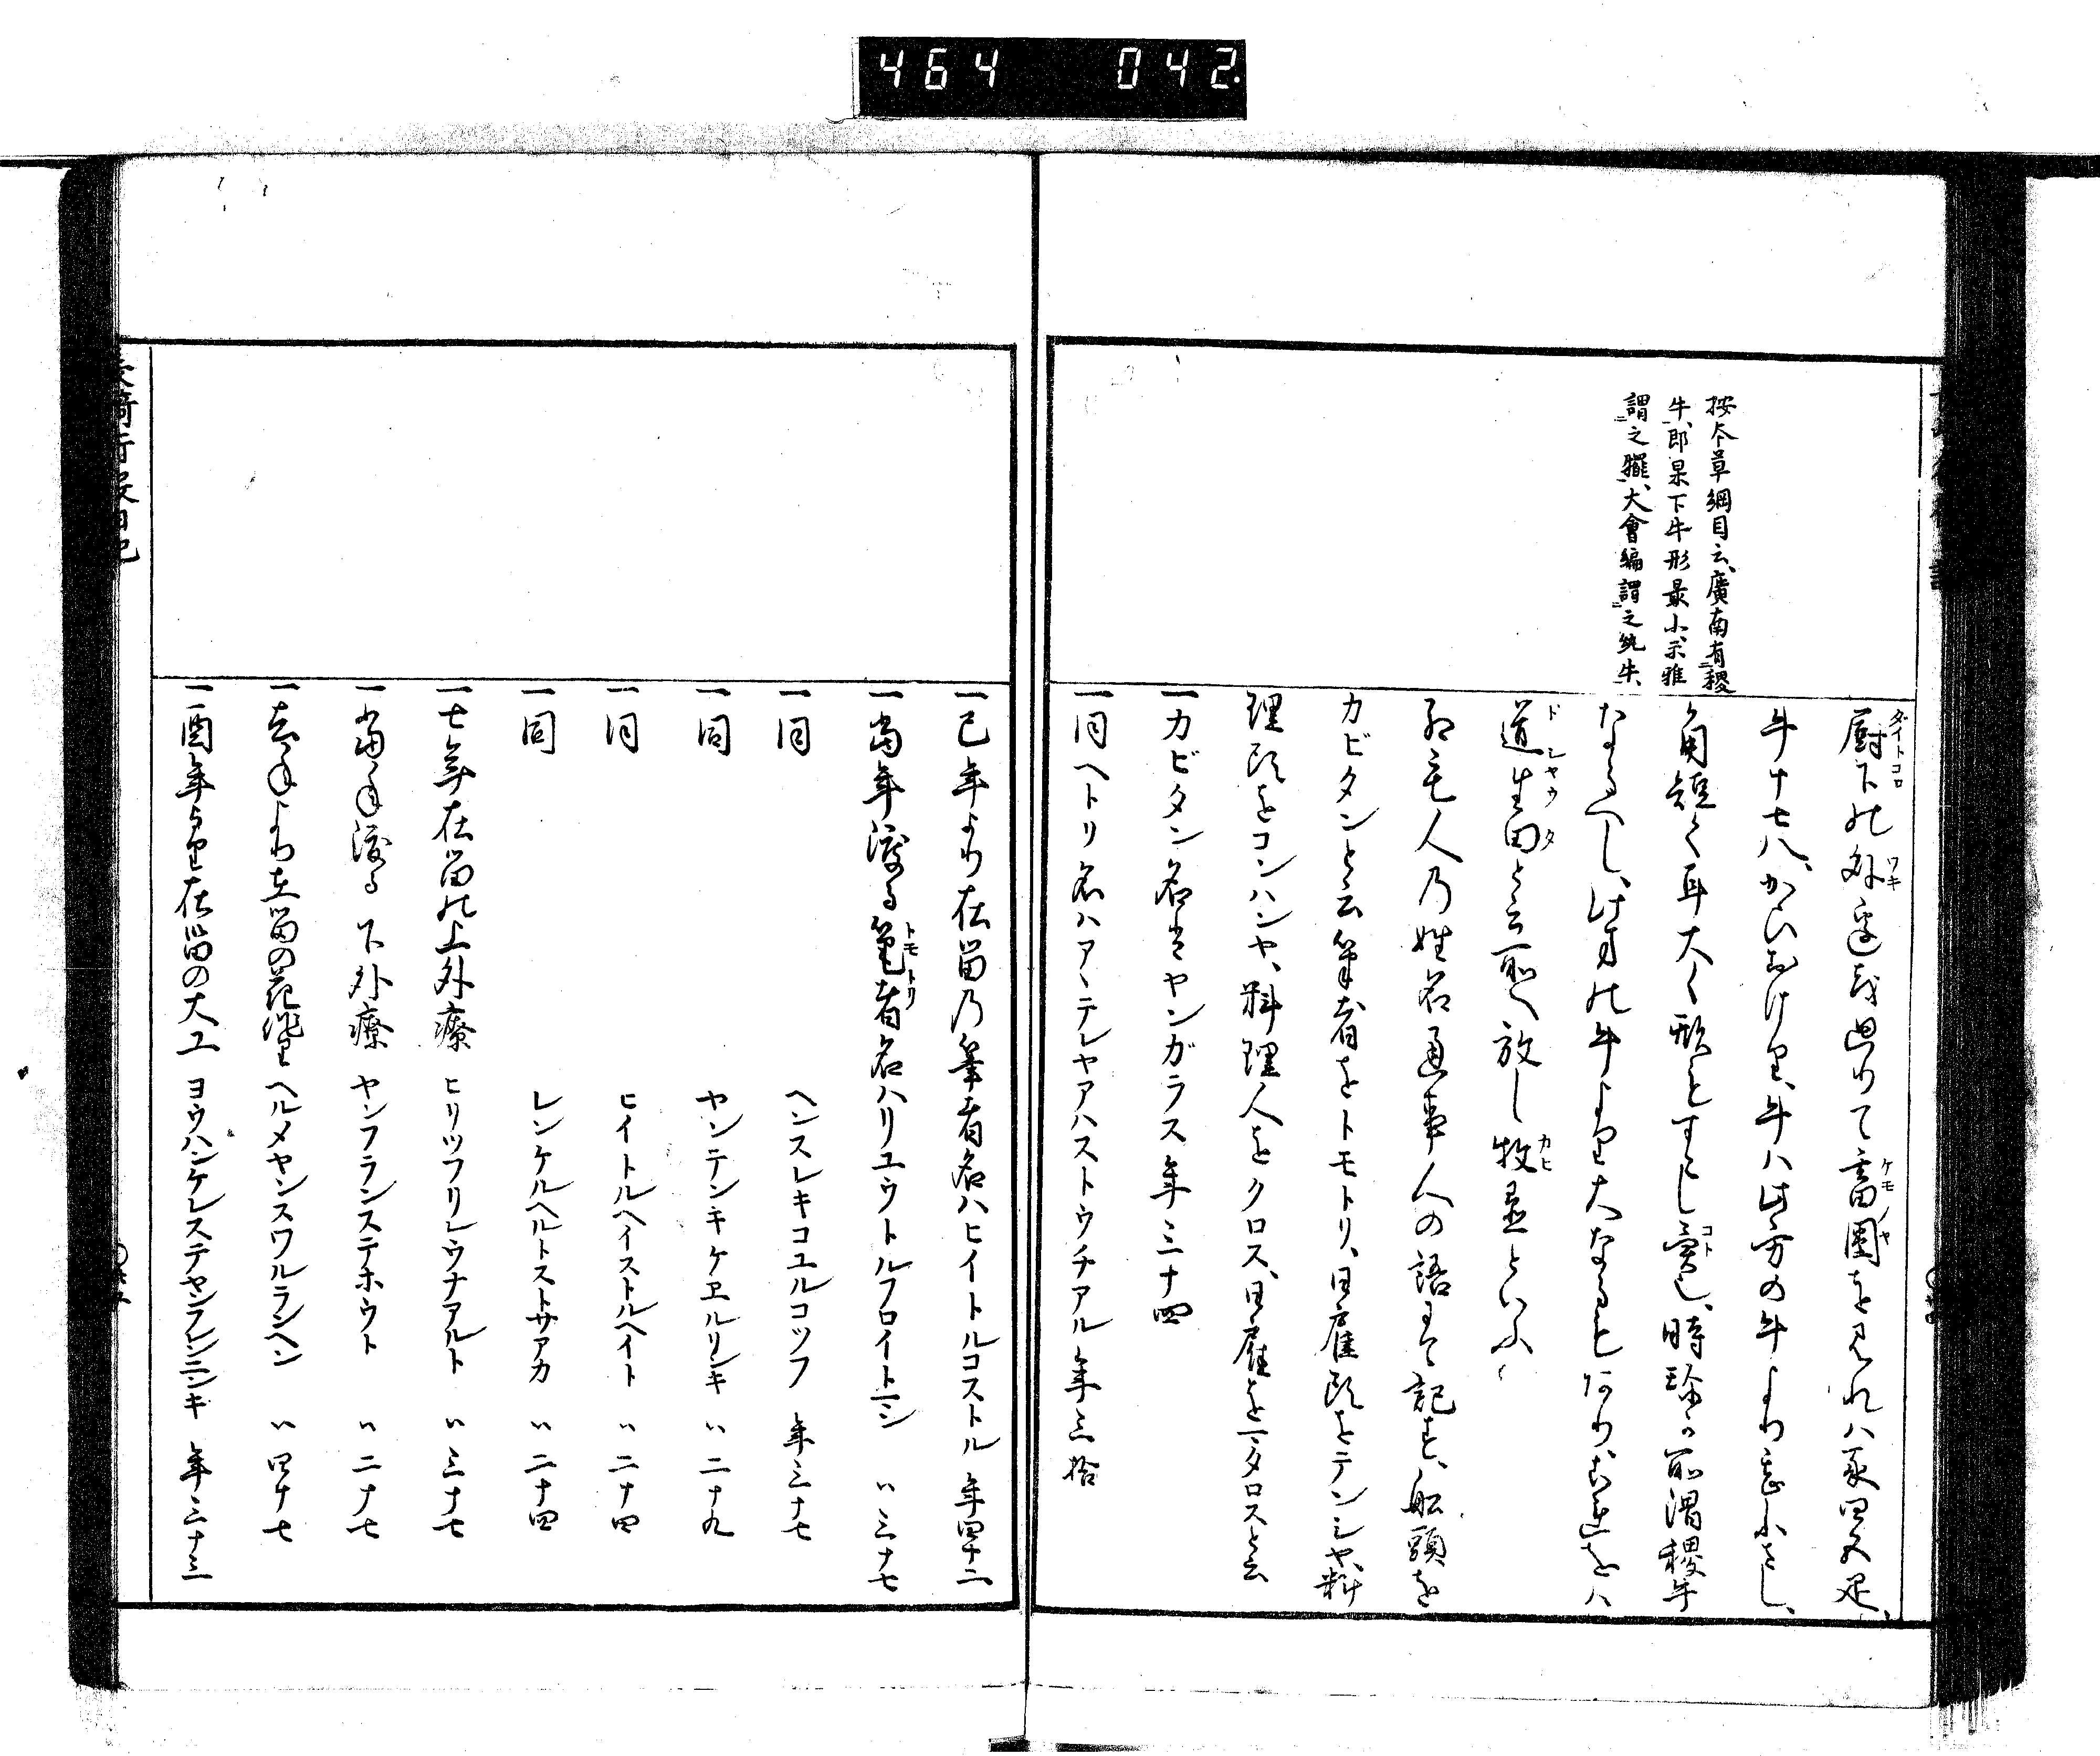 464 042
按本草綱目云、廣南有稷
牛、即果下牛形最小、爾雅
謂之犤、大會編謂之紈牛、
厨下の外邊を過りて畜圈を見れハ豕四五疋、
牛十七八、かひおけり、牛ハ此方の牛より小さし、
角短く耳大く形とすこし、時珍の所謂稷牛
なるへし、はまれ牛より大なるもあり、是をハ
道生田と云所へ放し牧置といふ
紅毛人乃姓名通事人の語るを記す、船頭を
カビタンと云筆者をトモトリ、日雇頭をテンシヤ、料
理頭をコンハンヤ、料理人をクロス、日雇を一タロスと云
一カビタン名ハヤンガラス年三十四
一同ヘトリ名ハアヽテレヤアハストウチアル年三拾
一巳年より在留乃筆者名ハヒイトルコストル 年四十二
一當年渡る筆者名ハリユウトルフロイトニシ 〃三十七
一同 ヘンスレキコユルコツフ 年三十七
一同 ヤンテンキケヱルリンキ 〃二十九
一同 ヒイトルヘイストルヘイト 〃二十四
一同 レンケルヘルトストザアカ 〃二十四
一七年在留の上外療 ヒリツフリレウナアルト 〃三十七
一當年渡る下外療 ヤンフランステホウト 〃二十七
一去年より在留の花畑 ヘルメヤンスワルランヘン 〃四十七
一酉年より在留の大工 ヨウハンケレステヤンフレンニンキ 年三十三
長崎行役日記